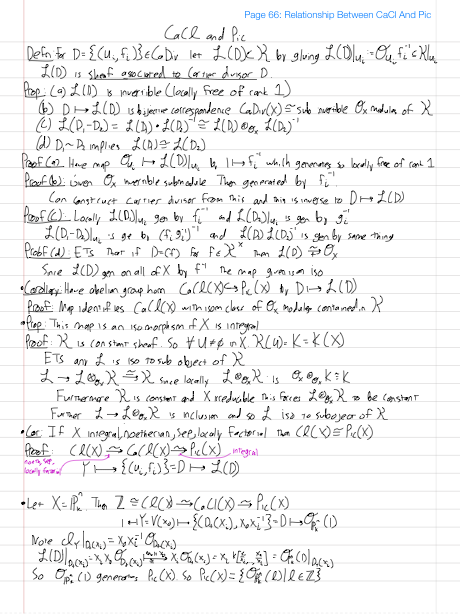 Page 66: Relationship Between CaCl And Pic
CaCl and Pic
Defn: for D={(U_i,f_i)}∈CaDiv let ℒ(D)⊂𝒦 by gluing ℒ(D)|_{U_i}=𝒪_{U_i}f_i^{-1}⊂𝒦|_{U_i}
ℒ(D) is sheaf associated to Cartier divisor D
Prop: (a) ℒ(D) is invertible (locally free of rank 1)
(b) D↦ℒ(D) is bijective correspondence CaDiv(X)≅sub invertible 𝒪_X modules of 𝒦
(c) ℒ(D_1-D_2)=ℒ(D_1)·ℒ(D_2)^{-1}≅ℒ(D_1)⊗_{𝒪_X}ℒ(D_2)^{-1}
(d) D_1~D_2 implies ℒ(D_1)≅ℒ(D_2)
Proof(a): Have map 𝒪_{U_i}↦ℒ(D)|_{U_i} by 1↦f_i^{-1} which generates so locally free of rank 1
Proof(b): Given 𝒪_X invertible submodule Then generated by f_i^{-1}
Can construct Cartier divisor from this and this is inverse to D↦ℒ(D)
Proof(c): Locally ℒ(D_1)|_{U_i} gen by f_i^{-1} and ℒ(D_2)|_{U_i} is gen by g_i^{-1}
ℒ(D_1-D_2)|_{U_i} is ge by (f_i g_i^{-1})^{-1} and ℒ(D_1)ℒ(D_2)^{-1} is gen by same thing
Proof(d): ETS that if D=(f) for f∈𝒦^× then ℒ(D)≅𝒪_X
Since ℒ(D) gen on all of X by f^{-1} the map given is iso
•Corollary: Have abelian group hom CaCl(X)↪Pic(X) by D↦ℒ(D)
Proof: Map identifies CaCl(X) with isom class of 𝒪_X modules contained in 𝒦
•Prop: This map is an isomorphism if X is integral
Proof: 𝒦 is constant sheaf. So ∀U≠∅ in X. 𝒦(U)=K=K(X)
ETS any ℒ is iso to sub object of 𝒦
ℒ→ℒ⊗_{𝒪_X}𝒦≅𝒦 since locally ℒ⊗_{𝒪_X}𝒦 is 𝒪_X⊗_{𝒪_X}K≅K
Furthermore 𝒦 is constant and X irreducible this forces ℒ⊗_{𝒪_X}𝒦 to be constant
Further ℒ→ℒ⊗_{𝒪_X}𝒦 is inclusion and so ℒ iso to subobject of 𝒦
•Cor: If X integral, noetherian, sep, locally factorial Then Cl(X)≅Pic(X)
Proof: Cl(X)⥲CaCl(X)⥲Pic(X) integral
noeth, sep, locally factorial
Y↦{(U_i,f_i)}=D↦ℒ(D)
•Let X=ℙ_k^n Then ℤ≅Cl(X)⥲CaCl(X)⥲Pic(X)
1↦Y=V(x_0)↦{(D_+(x_i),x_0x_i^{-1})}=D↦𝒪_{ℙ^n}(1)
ℒ(D)|_{D_+(x_i)}=
So 𝒪_{ℙ^n}(1) generates Pic(X). So Pic(X)={𝒪_{ℙ^n}(l)|l∈ℤ}